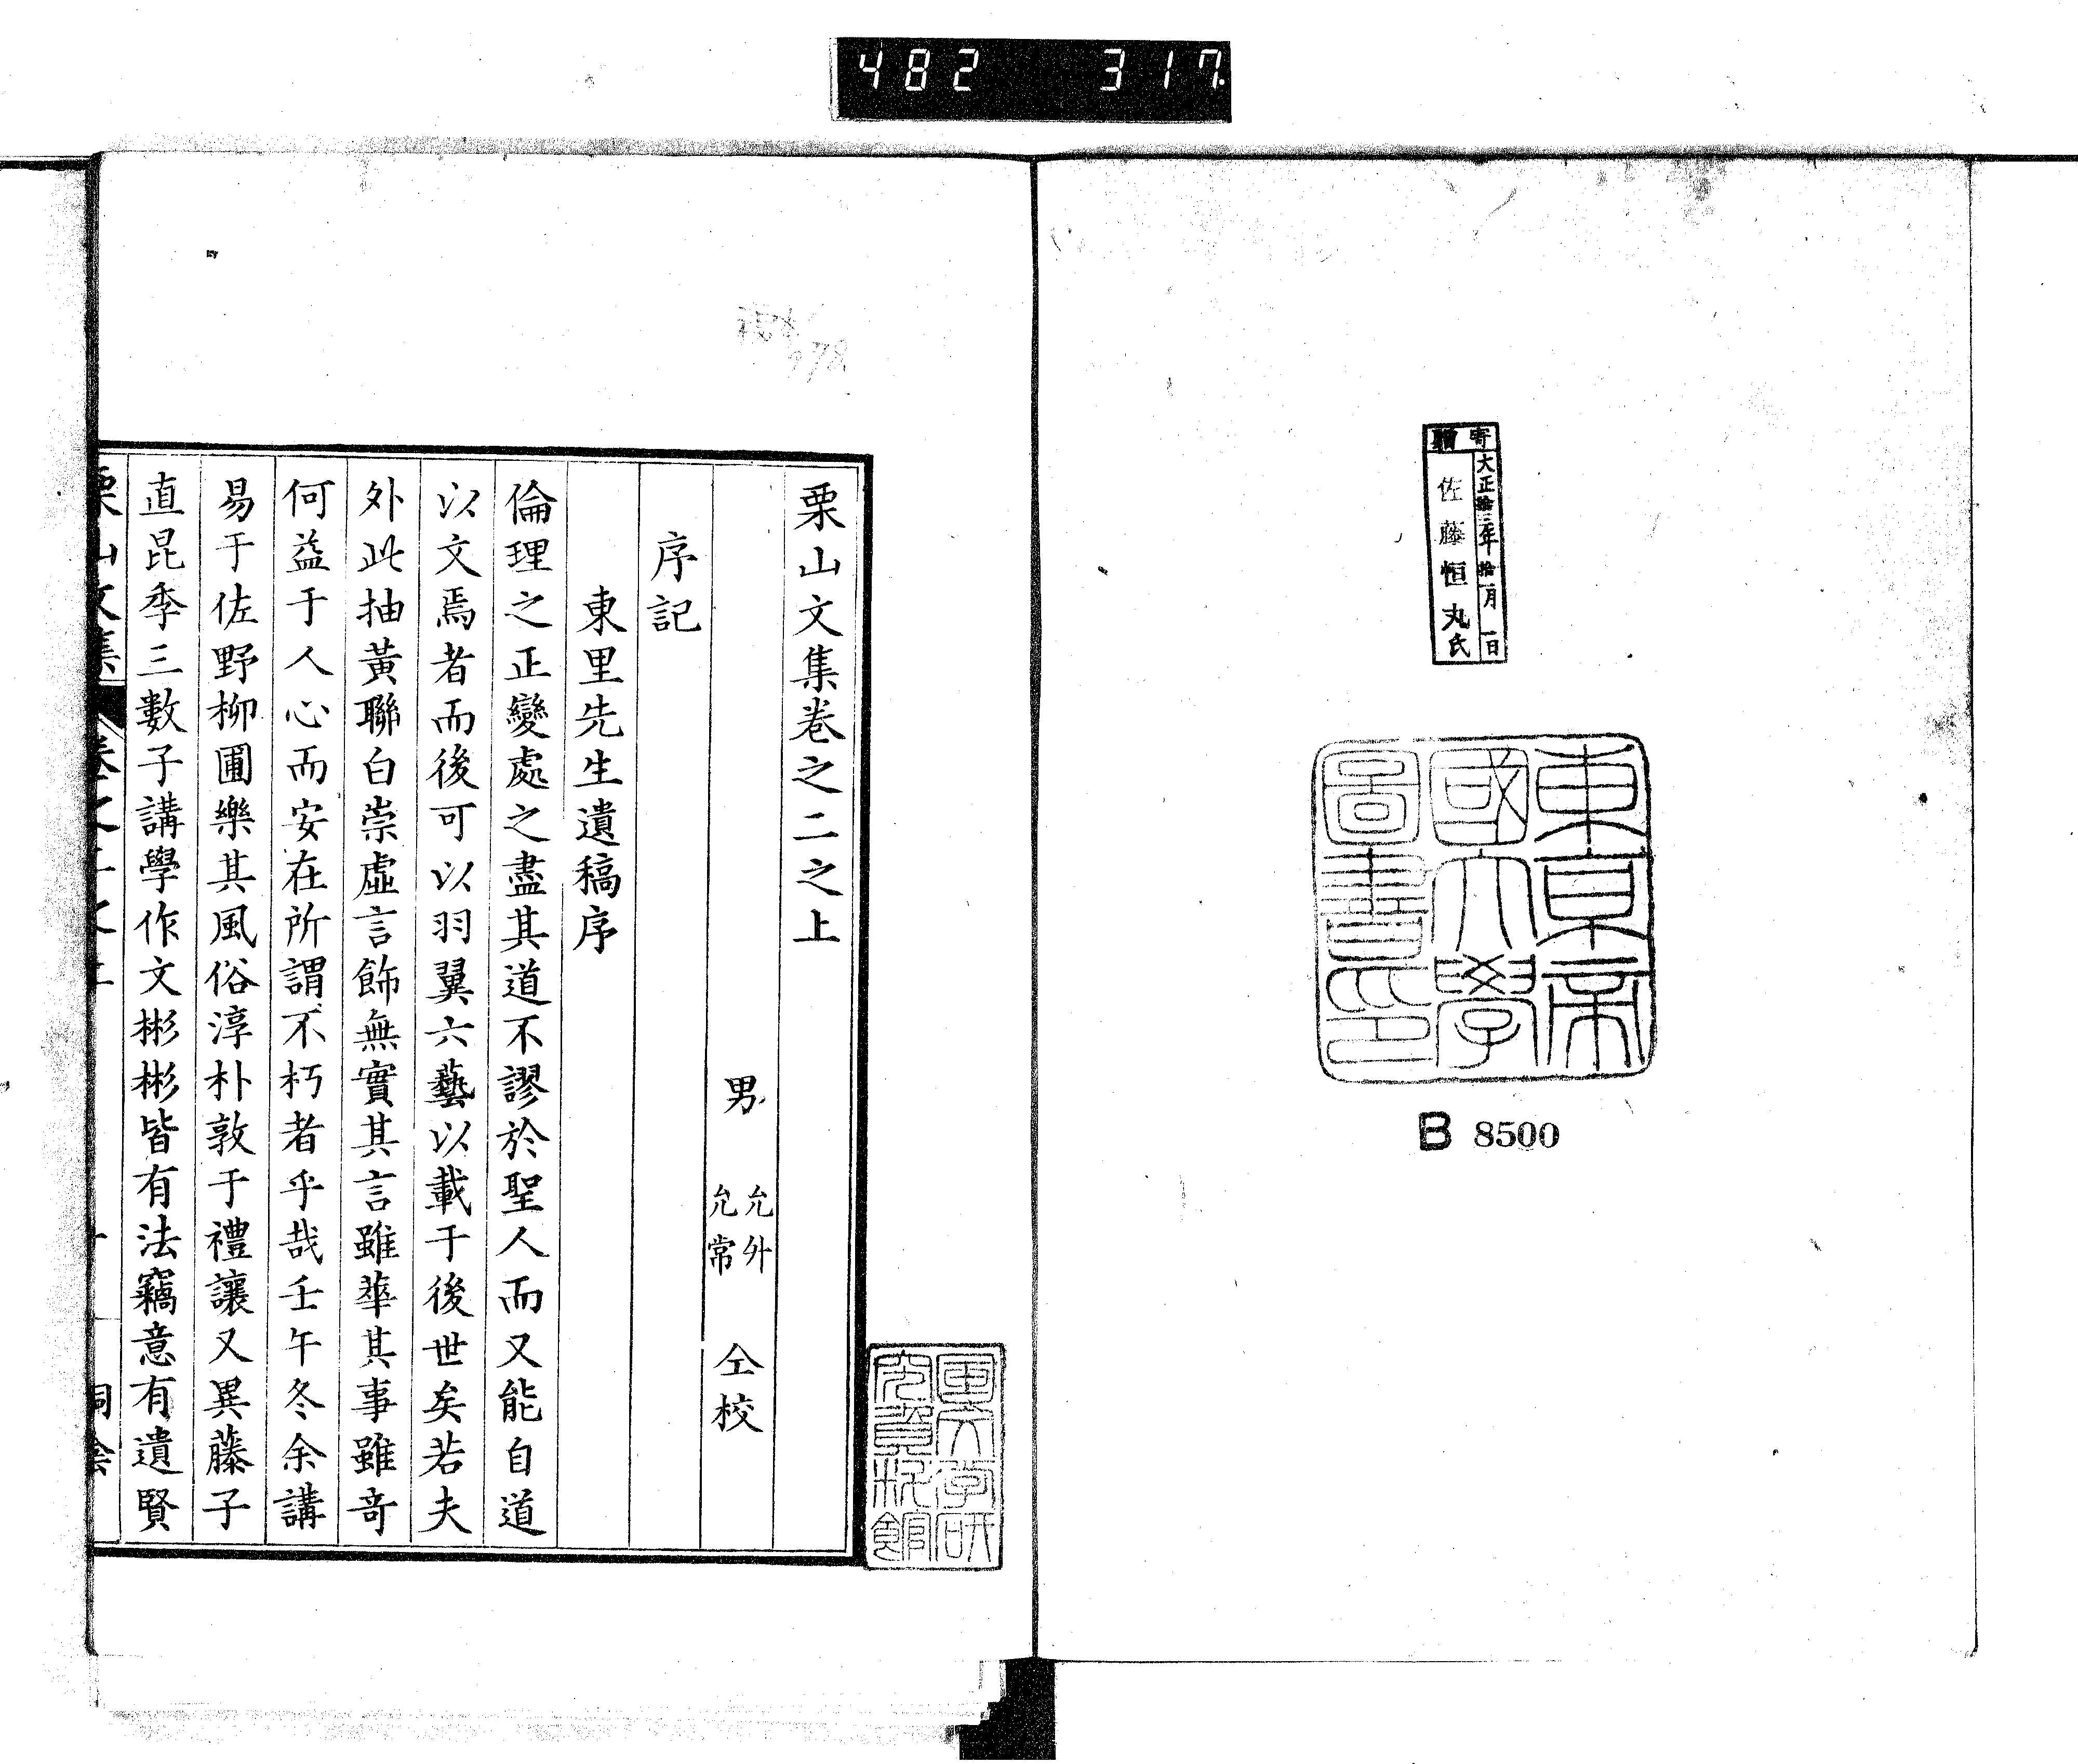 482 317.
寄贈
大正拾三年拾一月一日
佐藤恒丸氏
東京帝
國大學
圖書印
B 8500
栗山文集卷之二之上
男 允升 允常 仝校
序記
東里先生遺稿序
倫理之正變處之盡其道不謬於聖人而又能自道
以文焉者而後可以羽翼六藝以載于後世矣若夫
外此抽黃聯白崇虛言飾無實其言雖華其事雖奇
何益于人心而安在所謂不朽者乎哉壬午冬余講
易于佐野柳圃樂其風俗淳朴敦于禮讓又異藤子
直昆季三數子講學作文彬彬皆有法竊意有遺賢